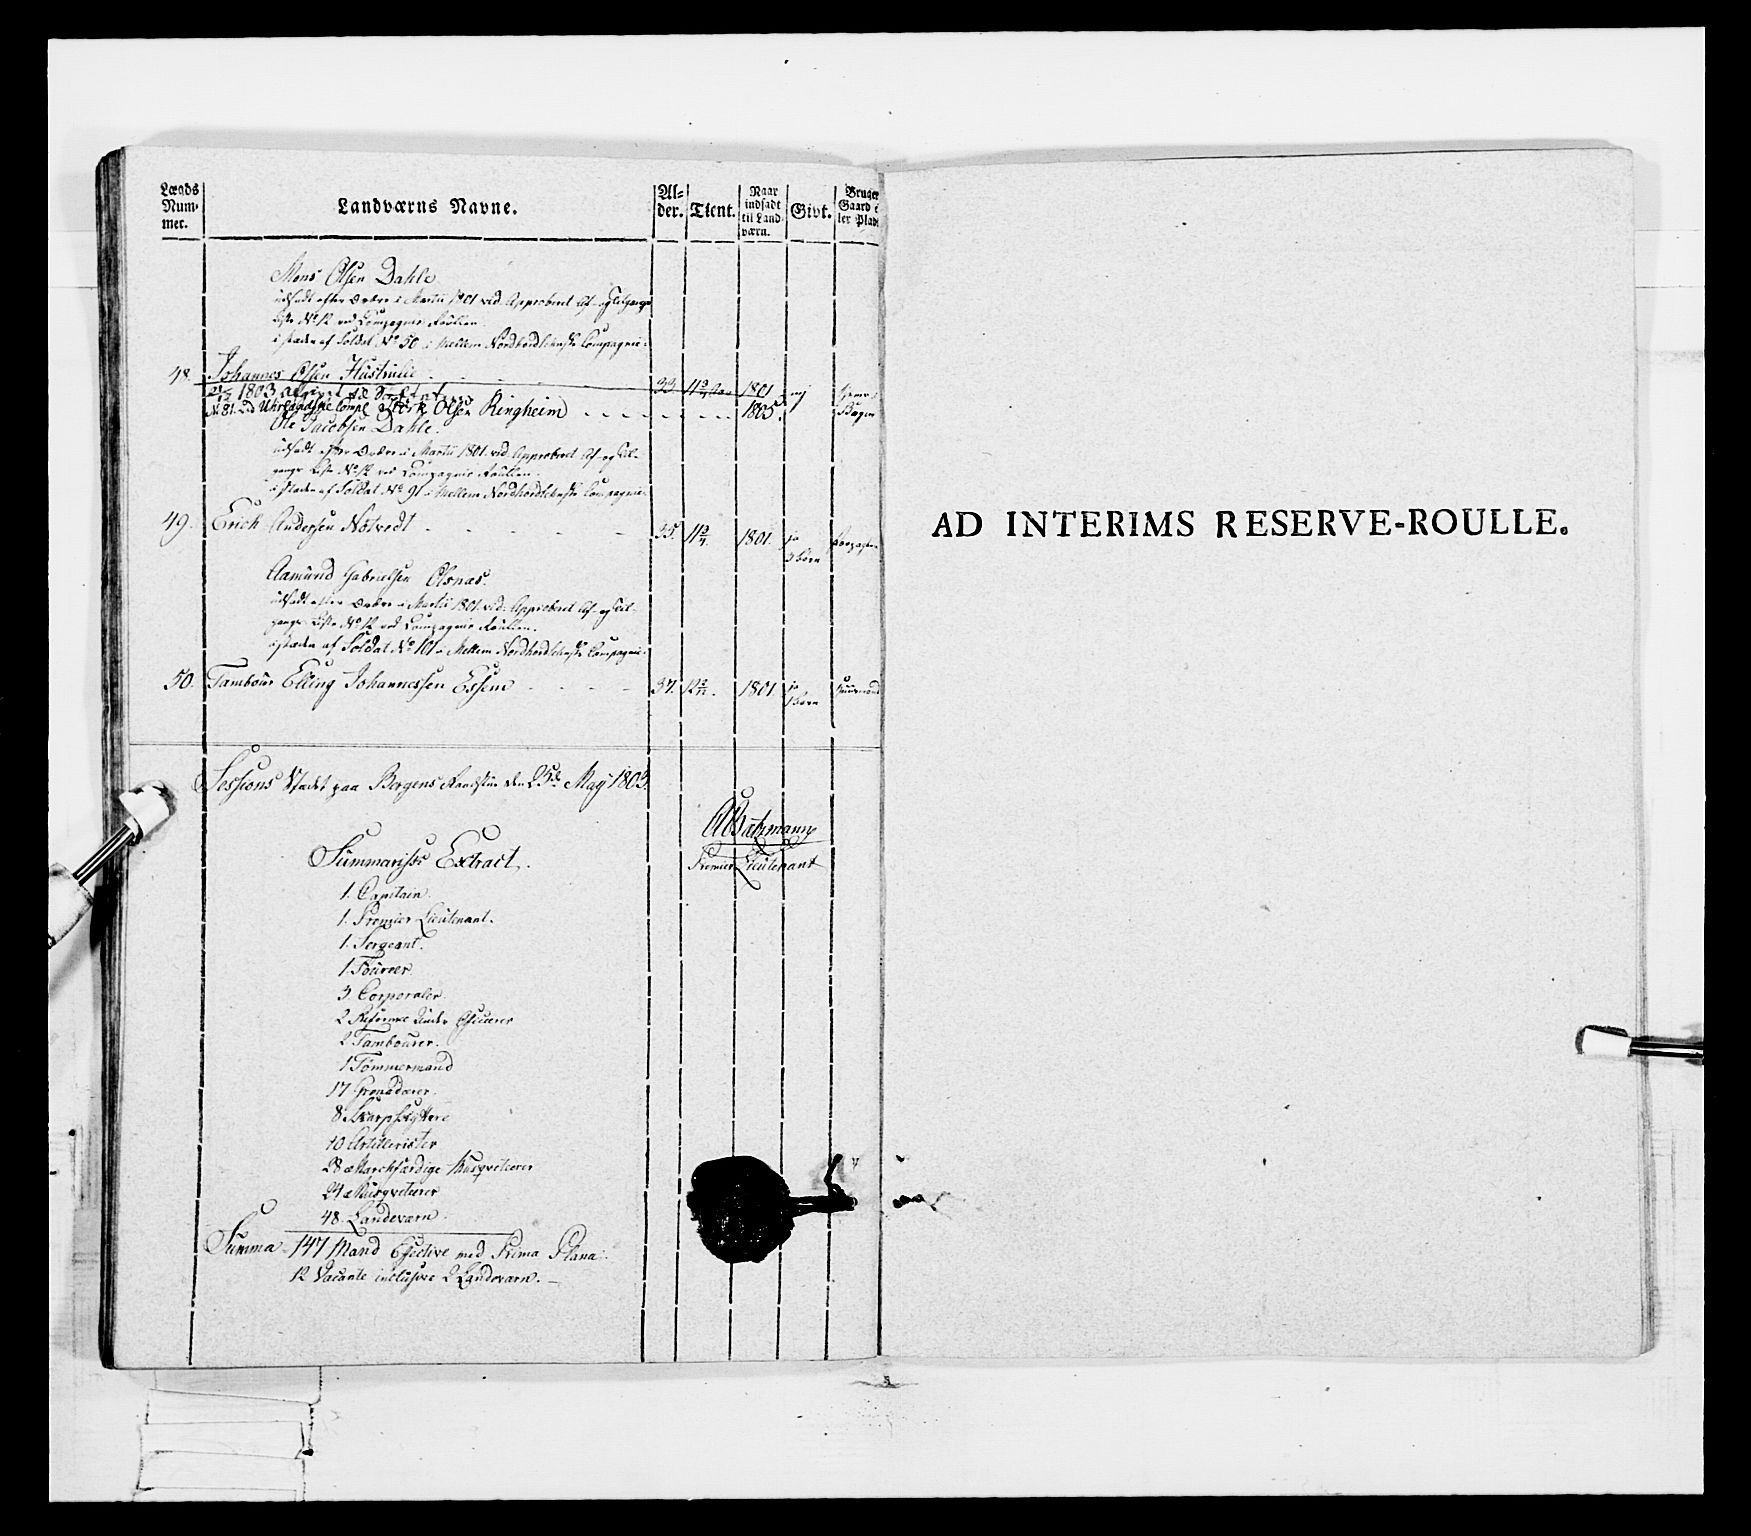 Lægds Num- mer.
Landværns Navne.
Al- der.
Tient.
Naar indsadt til Land- værn.
Givt.
Bruger Gaard e ler Plads
Mons Olsen Dahle
udsadt efter Ordre i Martii 1801 vid. Approberet Af- og tilgangs
Liste No 12 ved Compagnie Roullen.
i stæden af Soldat No 50 i Mellem Nordhordlehnske Compagnie.
48. Johannes Olsen Hustvilie 33. 1801 nej
1803 afgivet
No 81. Compe Olsen Ringheim 1805.
Ole Jacobsen Dahle.
udsadt efter Ordre i Martii 1801. vid. Approberet Af- og til-
gangs Liste No 12 ved Compagnie Roullen.
i stæden af Soldat No 91 i Mellem Nordhordlehnske Compagnie.
49. Erich Andersen Notvedt 35. 11 1801. ja
3 børn
Aamund Gabrielsen Olsnæs.
udsadt efter Ordre i Martii 1801. vid. Approberet Af- og til-
gangs Liste No 12 ved Compagnie Roullen.
i stæden af Soldat No 101 i Mellem Nordhordlehnske Compagnie.
50. Tambour Elling Johannessen Essem 37. 12 1801. ja Huusmand
1 børn
Sessions Stædet paa Bergens Raadstue den 23de May 1803.
ABatzmann
Premier Lieutenant
Summarisk Extract.
1. Capitain.
1. Premier Lieutenant.
1. Sergeant.
1. Foureer
3. Corporaler.
2 Reforme Under Officerer
2 Tambourer.
1 Tømmermand
17 Grenaderer.
8 Skarpskyttere
10 Artillerister
28 Marchfærdige Musqveterer
24 Musqveterer
48. Landeværn.
Summa 147 Mand Effective med Prima Plana.
12 Vacante inclusive 2 Landeværn.
AD INTERIMS RESERVE-ROULLE.